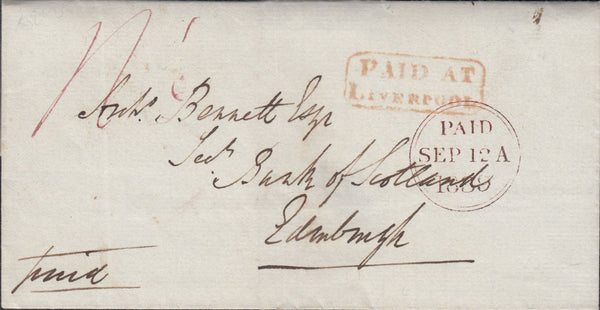 PAID AT
LIVERPOOL
Archd. Bennett Esqr
Secy.
Bank of Scotland
Edinburgh
PAID
SEP 12 A
paid